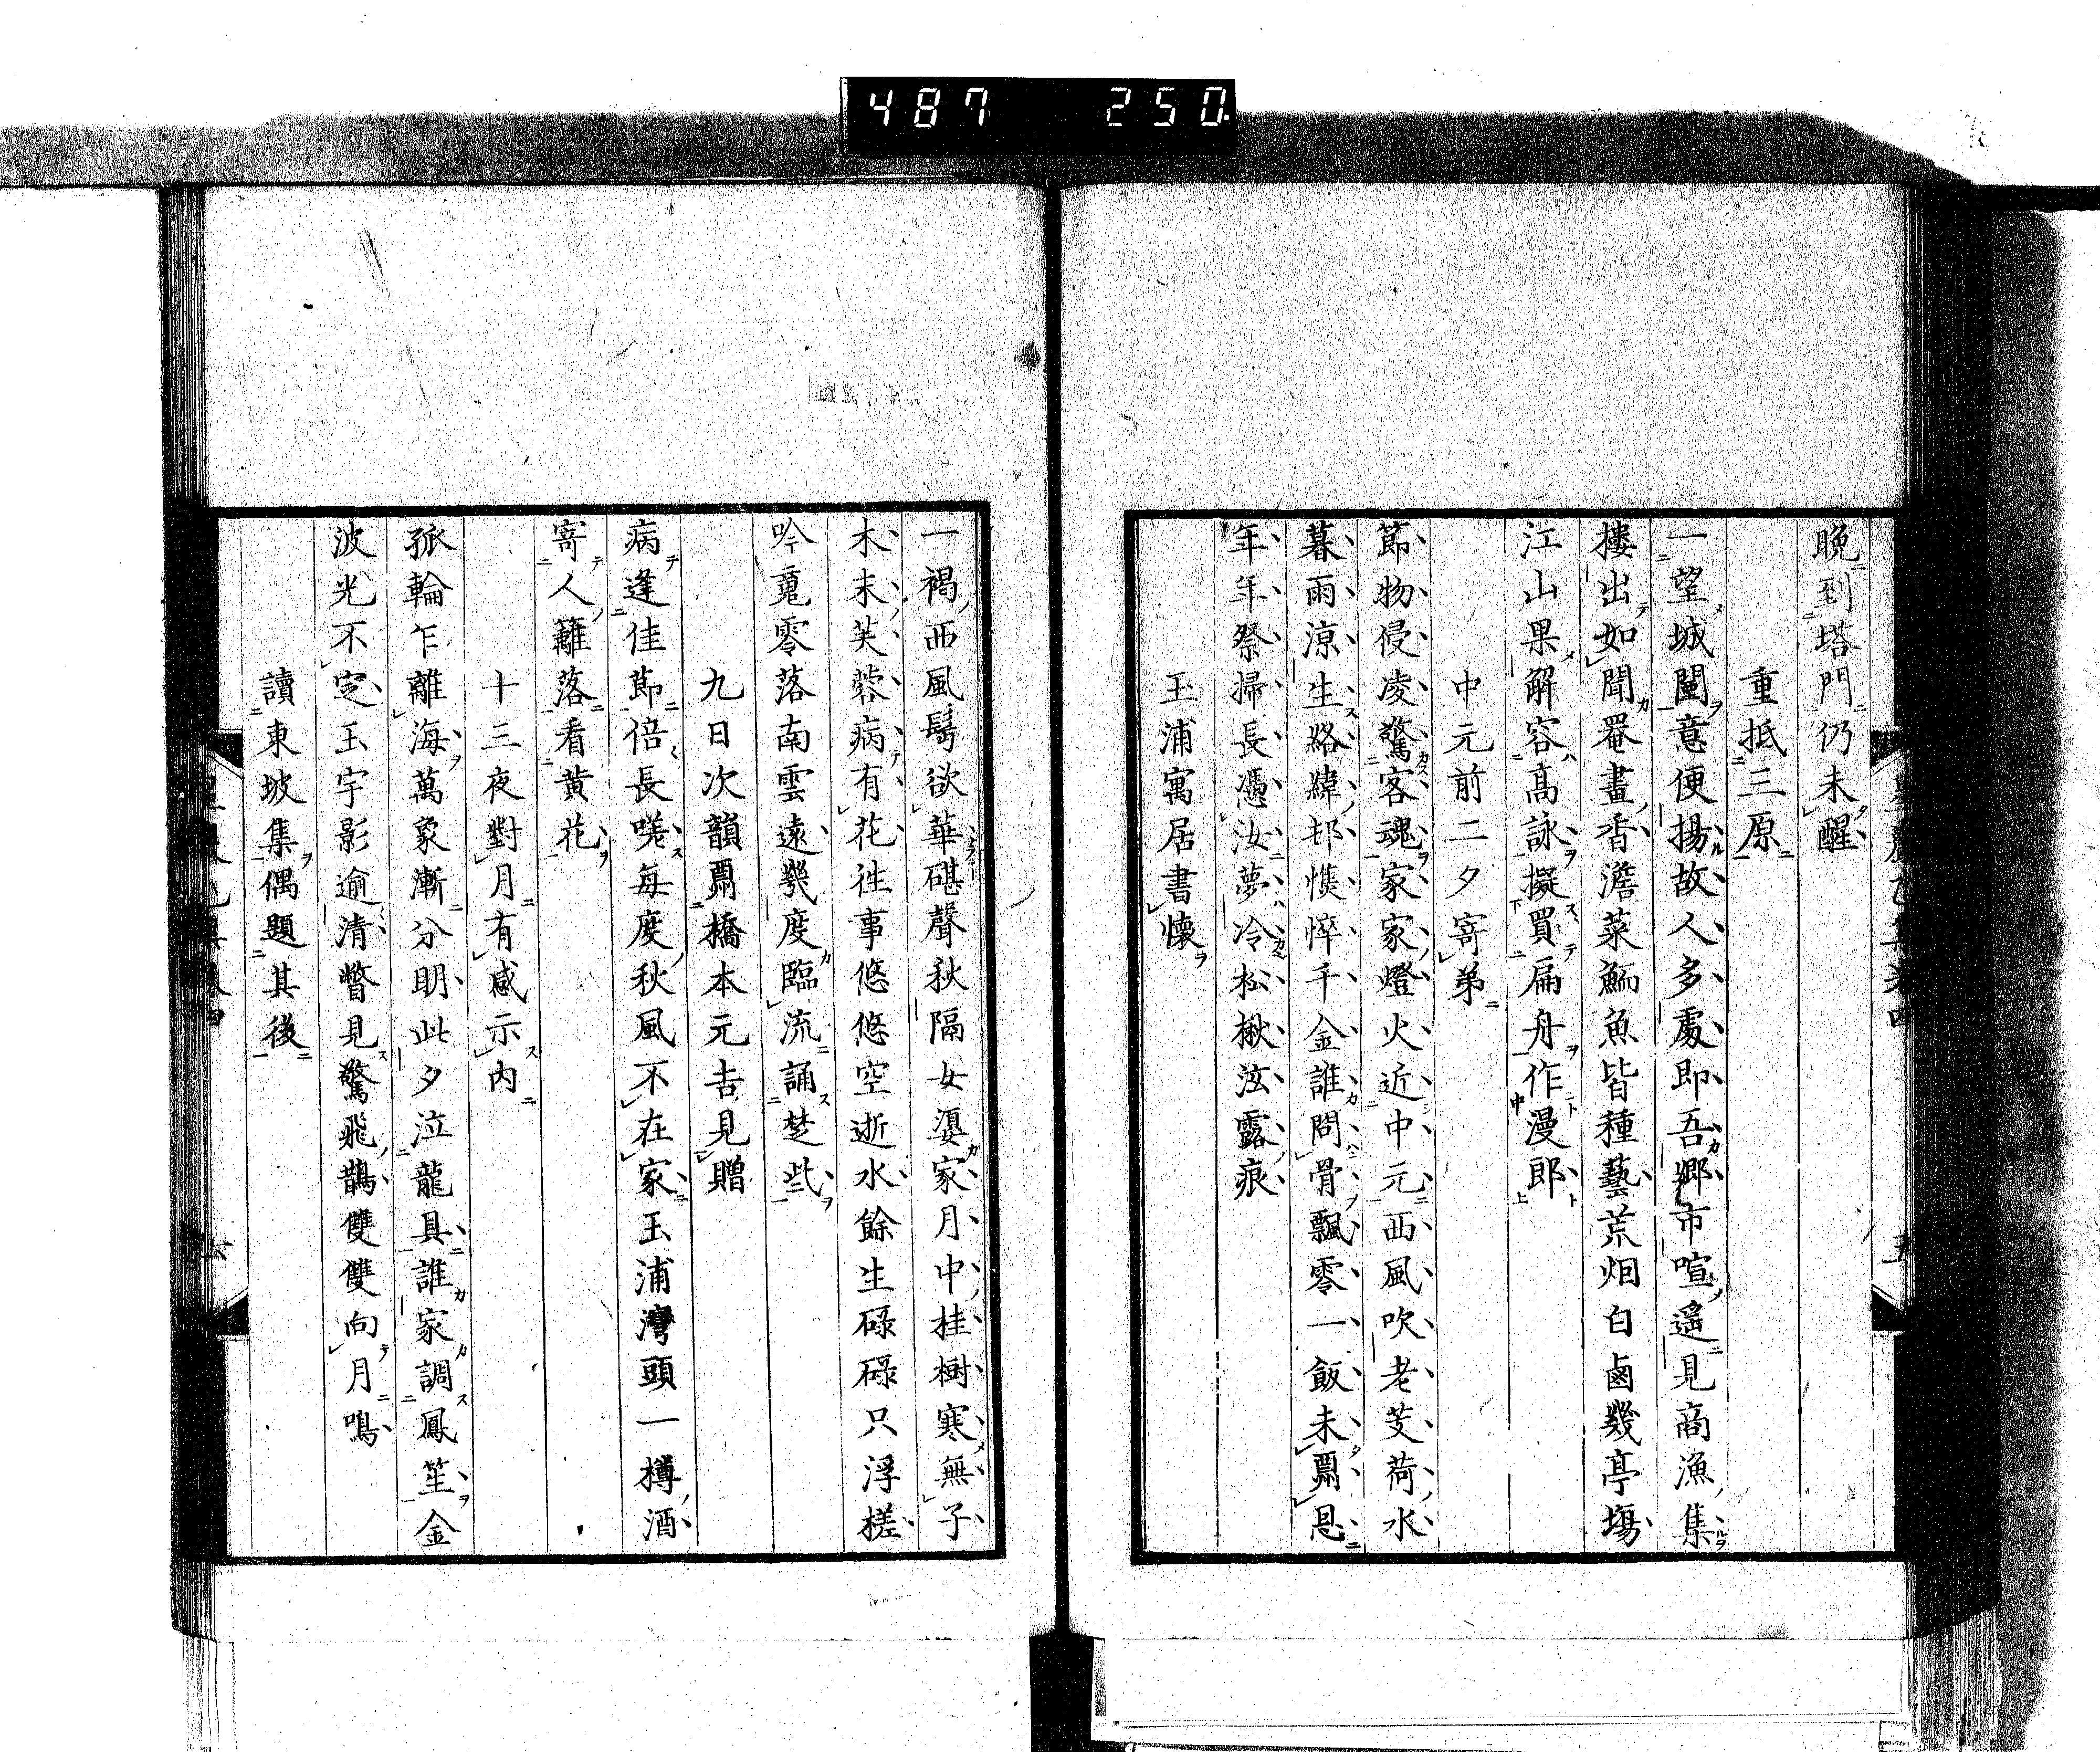 487 250
晚到塔門仍未醒
重抵三原
一望城闉意便揚故人多處即吾鄉市喧遙見商漁集
樓出如聞罨畫香澹菜鮞魚皆種藝荒烟白鹵幾亭塲
江山果解容高詠擬買扁舟作漫郎
中元前二夕寄弟
節物侵凌驚客魂家家燈火近中元西風吹老芰荷水
暮雨涼生絡緯邨憔悴千金誰問骨飄零一飯未酬恩
年年祭掃長憑汝夢冷松楸泫露痕
玉浦寓居書懷
一褐西風鬂欲華碪聲秋隔女嬃家月中桂樹寒無子
木末芙蓉病有花往事悠悠空逝水餘生碌碌只浮槎
吟䰟零落南雲遠幾度臨流誦楚些
九日次韻 橋本元吉見贈
病逢佳節倍長嗟每度秋風不在家玉浦灣頭一樽酒
寄人籬落看黃花
十三夜對月有感示内
孤輪乍離海萬象漸分明此夕泣龍具誰家調鳳笙金
波光不定玉宇影逾清瞥見驚飛鵲雙雙向月鳴
讀東坡集偶題其後